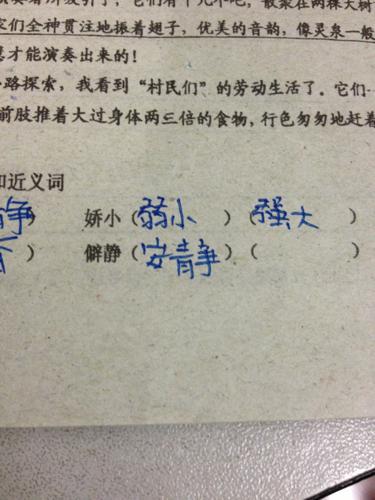 们全神贯注地振着翅子，优美的音韵，像灵泉一般
才能演奏出来的！
路探索，我看到“村民们”的劳动生活了。它们一
前肢推着大过身体两三倍的食物，行色匆匆地赶着
和近义词
静） 娇小（弱小）（强大）
） 僻静（安静）（ ）